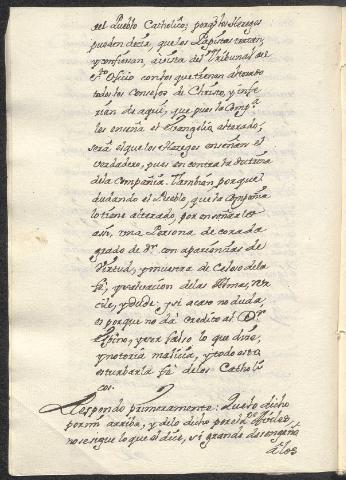 del Pueblo Catholico; porq̃ los Hereges
pueden decir, que los Papistas
y confiesan, a vista del Tribunal del
S.to Oficio con los que tienen alterado
todos los Consejos de Christo, y infe-
rirán de aqui, que pues la Comp.a
les enseña el Evangelio alterado,
será el que los Hereges enseñan el
verdadero, pues es contra la doctrina
de la Compañia. Tambien porque
dudando el Pueblo, que la Compañia
lo tiene alterado, por enseñarlo
asi, una Persona de
grado de D.r con apariencias de
Virtud, y muestra de Celoso de la
fé, y salvacion de las Almas,
y dude; y si acaso no duda,
es porque no dá credito al D.r
Espino, y ver falso lo que dice,
y notoria malicia, y todo esto es
esturbar la fé de los Catholi-
cos.
Respondo primeramente: Que lo dicho
por mi arriba, y de lo dicho por el D.or
no se sigue lo que él dice, si grande desengaño
á los